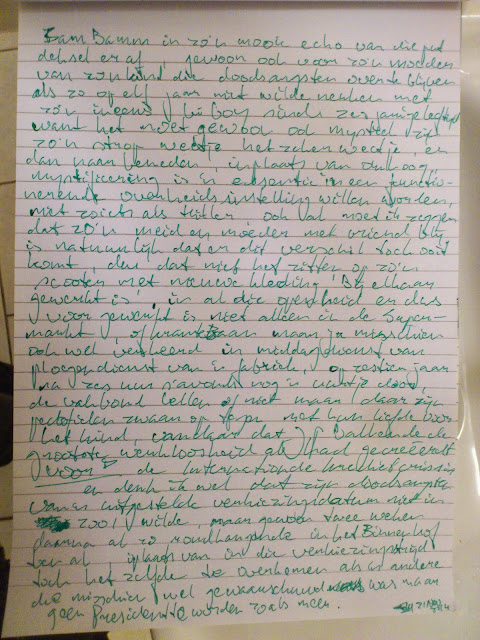 Bam Bamm in zo'n mooie echo van die put
deksel er af, gewoon ook voor zo'n moeder
van zo'n kind die doodsangsten over te blijven
als zo op elf jaar niet wilde neuken met
zo'n ineens) bij boy sinds zes jarige leeftijd
want het moet gewoon ook mystiek zijn
zo'n strop weetje het zeker weetje, en
dan naar beneden, inplaats van omhoog,
mystificering is in essentie in een functio-
nerende overheidsinstelling willen worden,
niet zoiets als Hitler. ook al moet ik zeggen
dat zo'n meid en moeder met vriend blij
is natuurlijk dat er dit verschil toch ooit
komt, dan dat niet het zitten op zo'n
scooter met nieuwe kleding! Bij elkaar
gewerkt is', in al die openheid en dus
voor gewerkt is niet alleen in de Super-
markt, of krant maar ja misschien
ook wel verkeerd in middagdienst van
ploegendienst van 'n fabriek, op zestien jaar
na zes uur s'avonds nog 'n uurtje door,
de vakbond bellen of niet maar daar zijn
pedofielen zwaar op tegen met hun liefde voor
het kind, vandaar dat Jf Balkende de
grootste werkloosheid als had gecreëerd
voor de Internationale kredietcrisis
en denk ik wel dat zijn doodsangsten
van 'n uitgestelde verkiezingsdatum niet in
2001 wilde, maar gewoon twee weken
daarna al zo rondhangende in het Binnenhof
ten al inplaats van in die verkiezingstijd
toch het zelfde te overkomen als 'n andere
die misschien wel gewaarschuwd was maar
geen President te worden zoals meer.